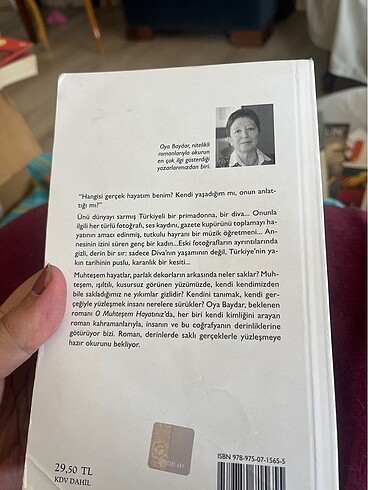 Oya Baydar, nitelikli
romanlarıyla okurun
en çok ilgi gösterdiği
yazarlarımızdan biri.
"Hangisi gerçek hayatım benim? Kendi yaşadığım mı, onun anlat-
tığı mı?"
Ünü dünyayı sarmış Türkiyeli bir primadonna, bir diva... Onunla
ilgili her türlü fotoğrafı, ses kaydını, gazete kupürünü toplamayı ha-
yatının amacı edinmiş, tutkulu hayranı bir müzik öğretmeni... An-
nesinin izini süren genç bir kadın...Eski fotoğrafların ayrıntılarında
gizli, derin bir sır: sadece Diva'nın yaşamının değil, Türkiye'nin ya-
kın tarihinin puslu, karanlık bir kesiti...
Muhteşem hayatlar, parlak dekorların arkasında neler saklar? Muh-
teşem, ışıltılı, kusursuz görünen yüzümüzde, kendi kendimizden
bile sakladığımız ne yıkımlar gizlidir? Kendini tanımak, kendi ger-
çeğiyle yüzleşmek insanı nerelere sürükler? Oya Baydar, beklenen
romanı O Muhteşem Hayatınız'da, her biri kendi kimliğini arayan
roman kahramanlarıyla, insanın ve bu coğrafyanın derinliklerine
götürüyor bizi. Roman, derinlerde saklı gerçeklerle yüzleşmeye
hazır okurunu bekliyor.
29,50 TL
KDV DAHİL
ISBN 978-975-07-1565-5